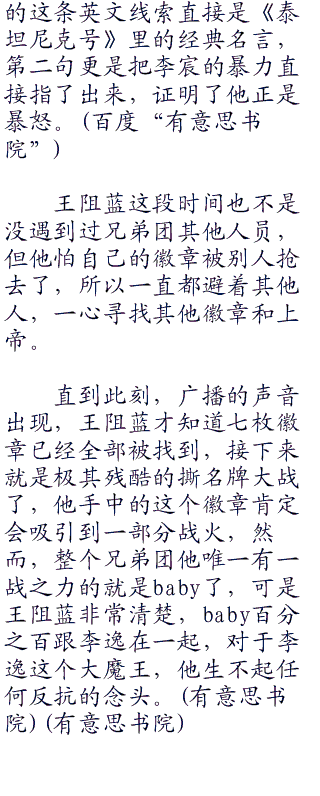 的这条英文线索直接是《泰
坦尼克号》里的经典名言，
第二句更是把李宸的暴力直
接指了出来，证明了他正是
暴怒。(百度“有意思书
院”)
王阻蓝这段时间也不是
没遇到过兄弟团其他人员，
但他怕自己的徽章被别人抢
去了，所以一直都避着其他
人，一心寻找其他徽章和上
帝。
直到此刻，广播的声音
出现，王阻蓝才知道七枚徽
章已经全部被找到，接下来
就是极其残酷的撕名牌大战
了，他手中的这个徽章肯定
会吸引到一部分战火，然
而，整个兄弟团他唯一有一
战之力的就是baby了，可是
王阻蓝非常清楚，baby百分
之百跟李逸在一起，对于李
逸这个大魔王，他生不起任
何反抗的念头。(有意思书
院)(有意思书院)